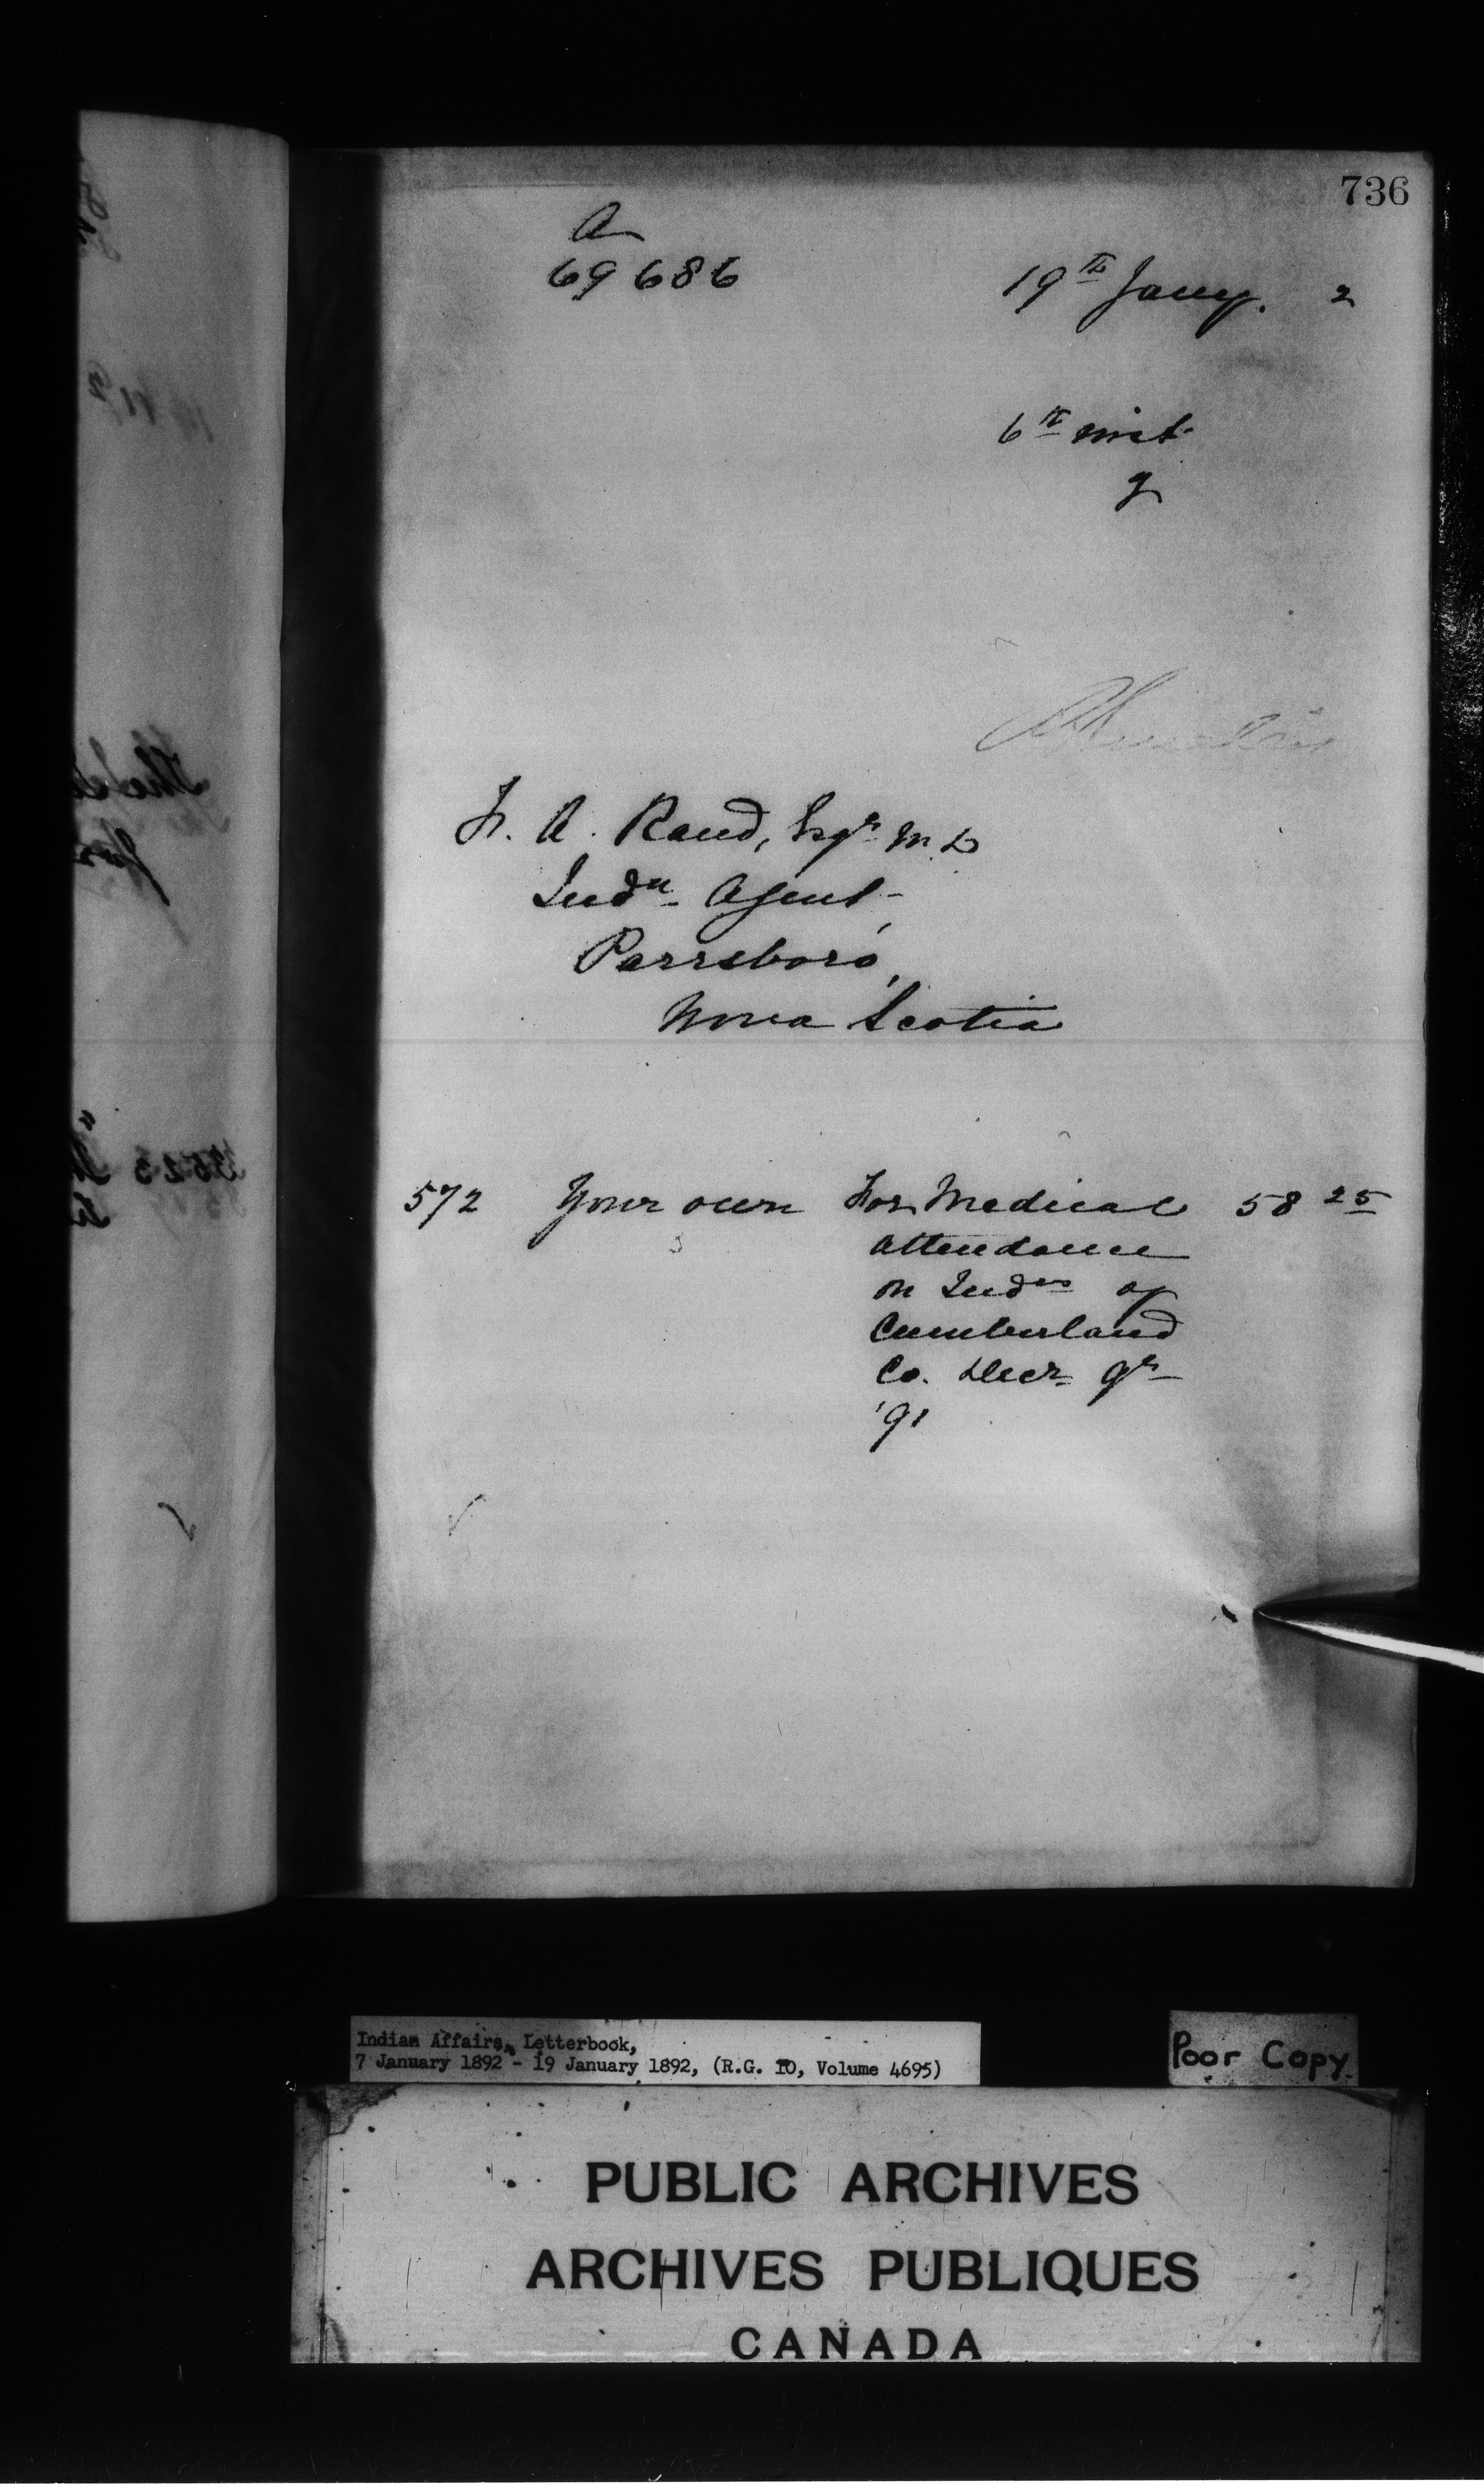 736
A
69686
19th Jany. 2
6th inst.
F. A. Rand, Esqr M.D
Indn Agent,
Parrsboro,
Nova Scotia
572 Your own For Medical 58 25
attendance
on Inds of
Cumberland
Co. Decr qr
'91
Indian Affairs, Letterbook,
7 January 1892 - 19 January 1892, (R.G. 10, Volume 4695)
Poor Copy.
PUBLIC ARCHIVES
ARCHIVES PUBLIQUES
CANADA